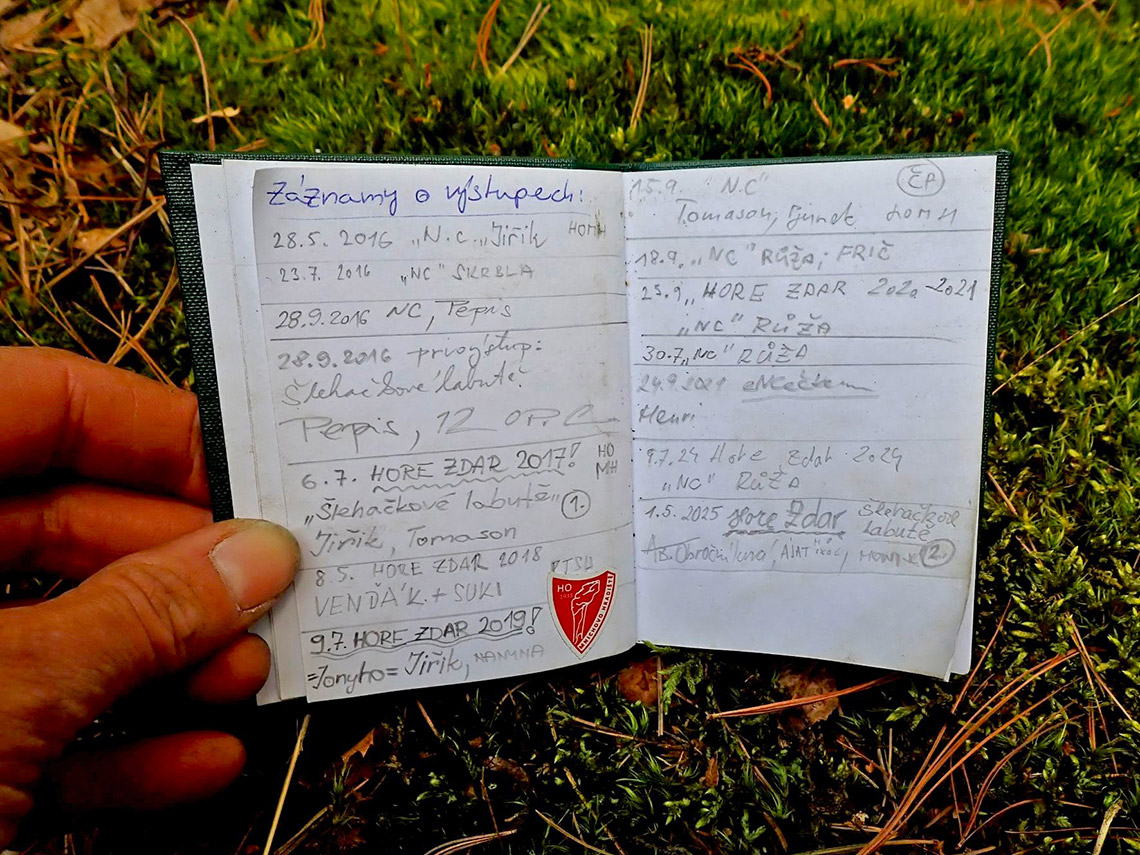 Záznamy o výstupech:
28.5. 2016 „N.C.„ Jiřík HOMH
23.7. 2016 „NC" SKRBLA
28.9.2016 NC, Pepis
28.9.2016 prvovýstup:
Šlehačkové labutě.
Pepis, 12 OP.C
6.7. HORE ZDAR 2017! HO
MH
„Šlehačkové labutě„ 1.
Jiřík, Tomason
8.5. HORE ZDAR 2018
VENĎÁK. + SUKI
HO
MNICHOVO HRADIŠTĚ
9.7. HORE ZDAR 2019!
=Jonyho= Jiřík, MANMNA
15.9. "NC" ČP
Tomason, HOMH
18.9. „NC" RŮŽA, FRIČ
25.9„ HORE ZDAR 2020-2021
„NC" RŮŽA
30.7„NC" RŮŽA
24.9.2021
Henri
9.7.24 Hore zdar 2024
„NC" RŮŽA
1.5.2025 Hore Zdar Šlehačkové
labutě
2.